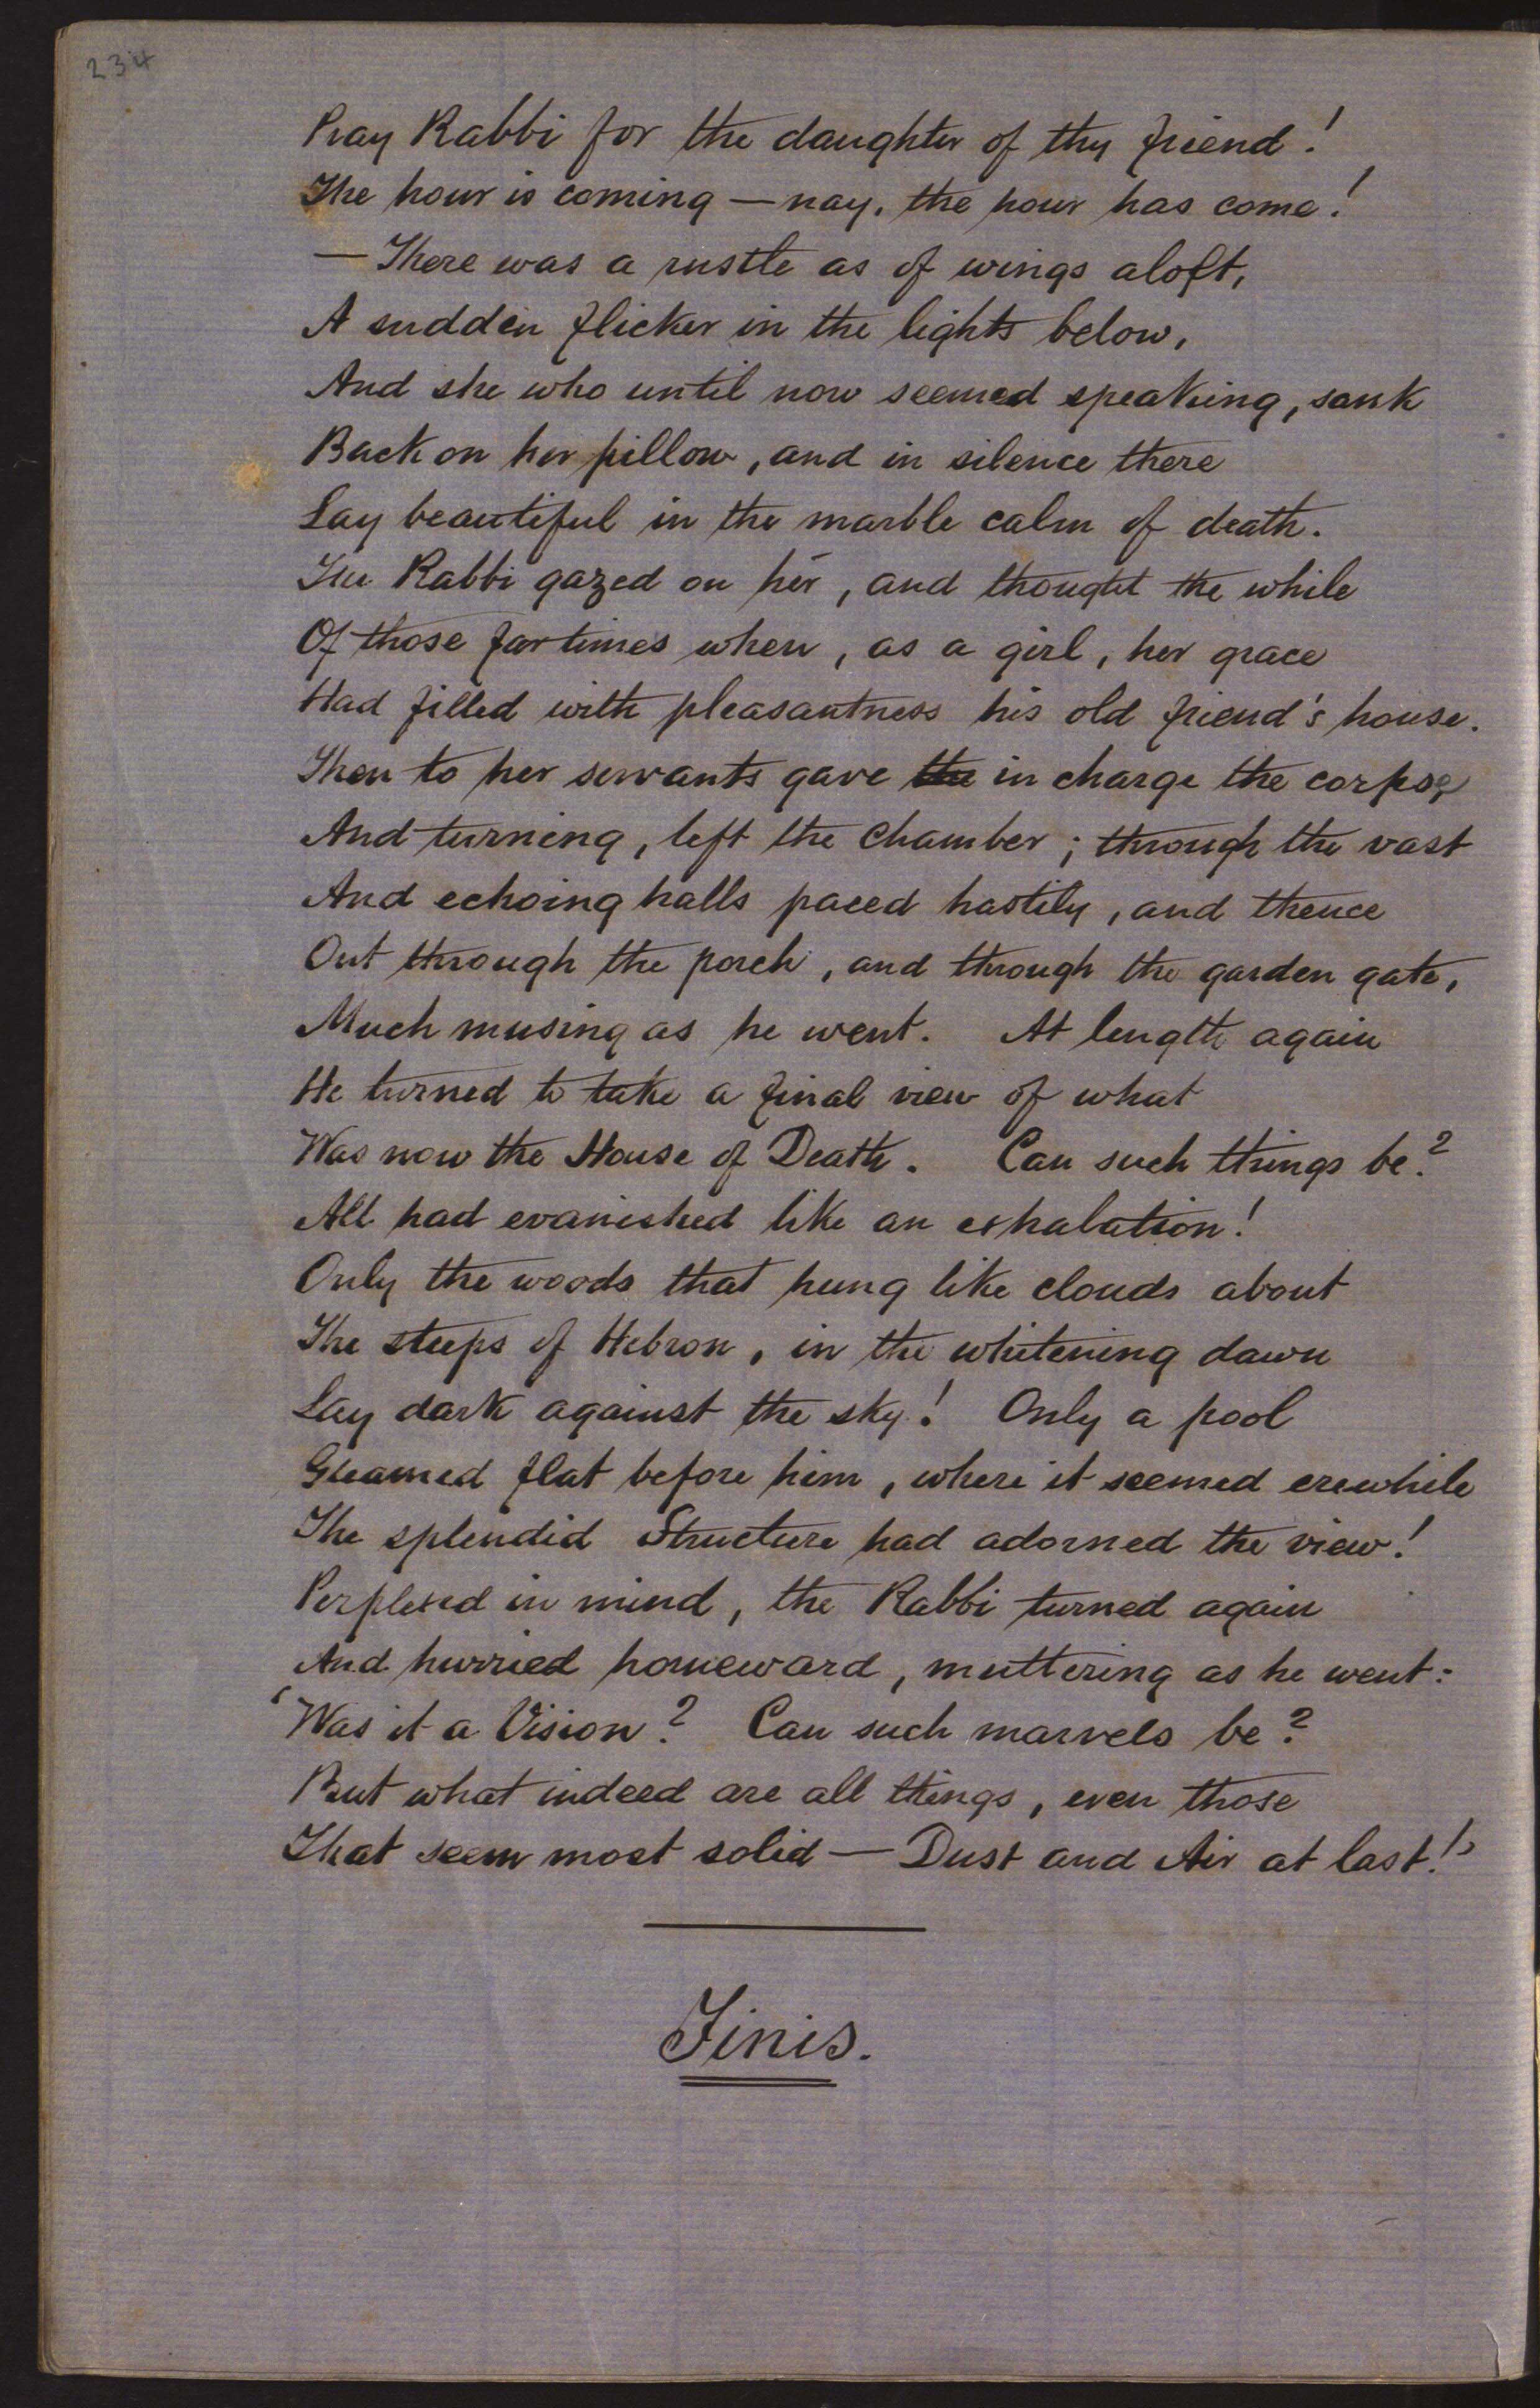 234
Pray Rabbi for the daughter of thy friend!
The hour is coming — nay, the hour has come!
— There was a rustle as of wings aloft,
A sudden flicker in the lights below,
And she who until now seemed speaking, sank
Back on her pillow, and in silence there
Lay beautiful in the marble calm of death.
The Rabbi gazed on her, and thought the while
Of those far times when, as a girl, her grace
Had filled with pleasantness his old friend's house.
Then to her servants gave the in charge the corpse,
And turning, left the chamber; through the vast
And echoing halls paced hastily, and thence
Out through the porch, and through the garden gate,
Much musing as he went. At length again
He turned to take a final view of what
Was now the House of Death. Can such things be?
All had evanished like an exhalation!
Only the woods that hung like clouds about
The steeps of Hebron, in the whitening dawn
Lay dark against the sky! Only a pool
Gleamed flat before him, where it seemed erewhile
The splendid Structure had adorned the view!
Perplexed in mind, the Rabbi turned again
And hurried homeward, muttering as he went:
'Was it a Vision? Can such marvels be?
But what indeed are all things, even those
That seem most solid — Dust and Air at last!'
Finis.